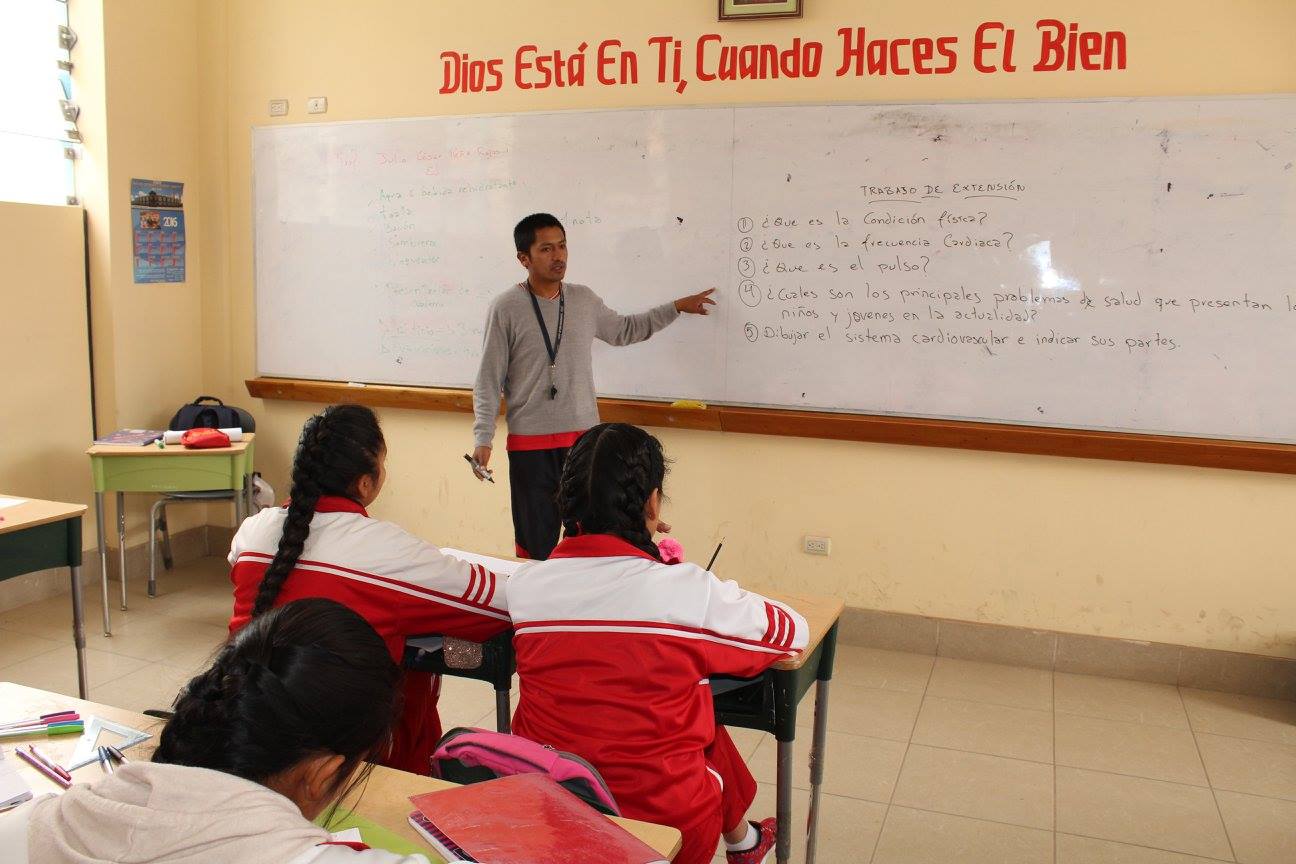 Dios Está En Ti, Cuando Haces El Bien
2016
Julio César
Agua o bebida rehidratante
toalla
Jabón
Sombrero
nota
TRABAJO DE EXTENSIÓN
① ¿Que es la Condición física?
② ¿Que es la frecuencia Cardiaca?
③ ¿Que es el pulso?
④ ¿Cuales son los principales problemas de salud que presentan
niños y jovenes en la actualidad?
⑤ Dibujar el sistema cardiovascular e indicar sus partes.